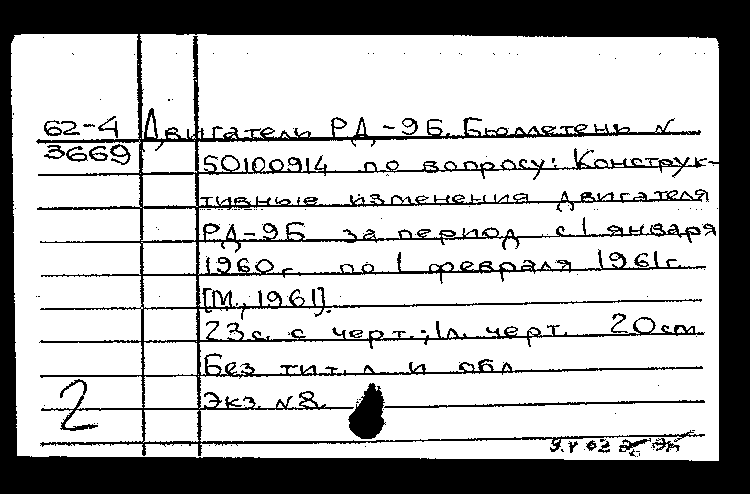 62-4 Двигатель РД-9Б. Бюллетень №
3669 50100914 по вопросу: Конструк-
тивные изменения двигателя
РД-9Б за период с 1 января
1960г. по 1 февраля 1961г.
[М., 1961].
23с. с черт.; 1л. черт. 20см
Без тит. л и обл
Экз. №8.
2
9.V 62